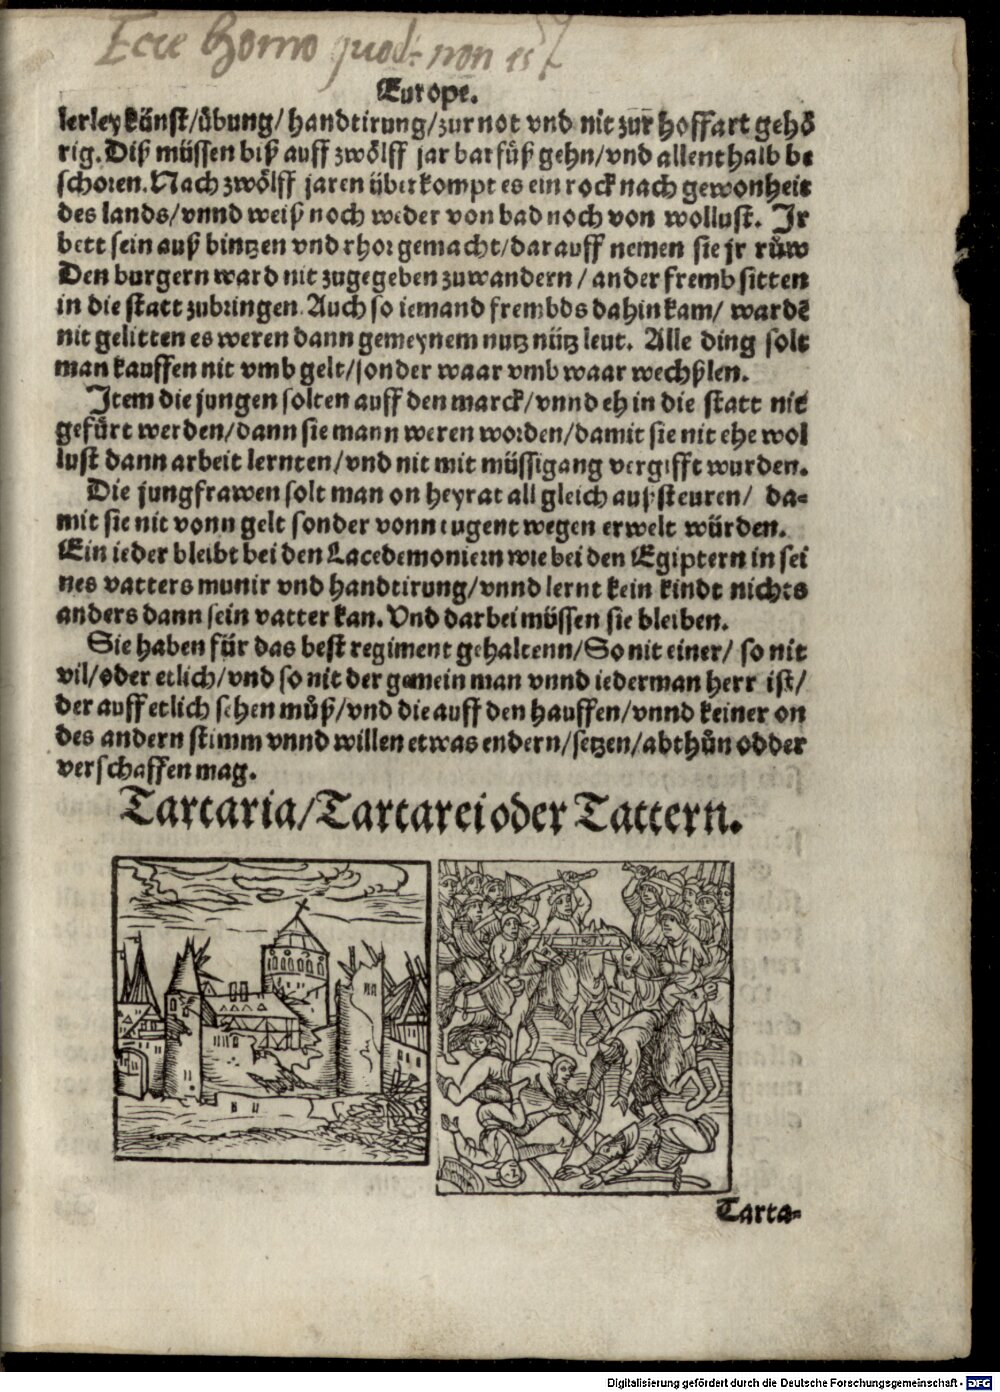 Ecce Homo quod non est
Europe.
lerley künst/übung/ handtirung/zur not vnd nit zur hoffart gehö
rig. Diß müssen biß auff zwölff jar barfůß gehn/vnd allenthalb be
schoren. Nach zwölff jaren überkompt es ein rock nach gewonheit
des lands/vnnd weiß noch weder von bad noch von wollust. Jr
bett sein auß bintzen vnd rhor gemacht/darauff nemen sie jr růw
Den burgern ward nit zugegeben zuwandern / ander fremb sitten
in die statt zubringen. Auch so iemand frembds dahin kam/ wardē
nit gelitten es weren dann gemeynem nutz nütz leut. Alle ding solt
man kauffen nit vmb gelt/sonder waar vmb waar wechßlen.
Item die jungen solten auff den marck/vnnd eh in die statt nit
gefürt werden/dann sie mann weren worden/damit sie nit ehe wol
lust dann arbeit lernten/vnd nit mit müssigang vergifft wurden.
Die jungfrawen solt man on heyrat all gleich außsteuren/ da-
mit sie nit vonn gelt sonder vonn tugent wegen erwelt würden.
Ein ieder bleibt bei den Lacedemoniern wie bei den Egiptern in sei
nes vatters munir vnd handtirung/vnnd lernt kein kindt nichts
anders dann sein vatter kan. Vnd darbei müssen sie bleiben.
Sie haben für das best regiment gehaltenn/So nit einer/ so nit
vil/oder etlich/vnd so nit der gemein man vnnd iederman herr ist/
der auff etlich sehen můß/vnd die auff den hauffen/vnnd keiner on
des andern stimm vnnd willen etwas endern/setzen/abthůn odder
verschaffen mag.
Tartaria/Tartarei oder Tattern.
Tarta-
Digitalisierung gefördert durch die Deutsche Forschungsgemeinschaft - DFG